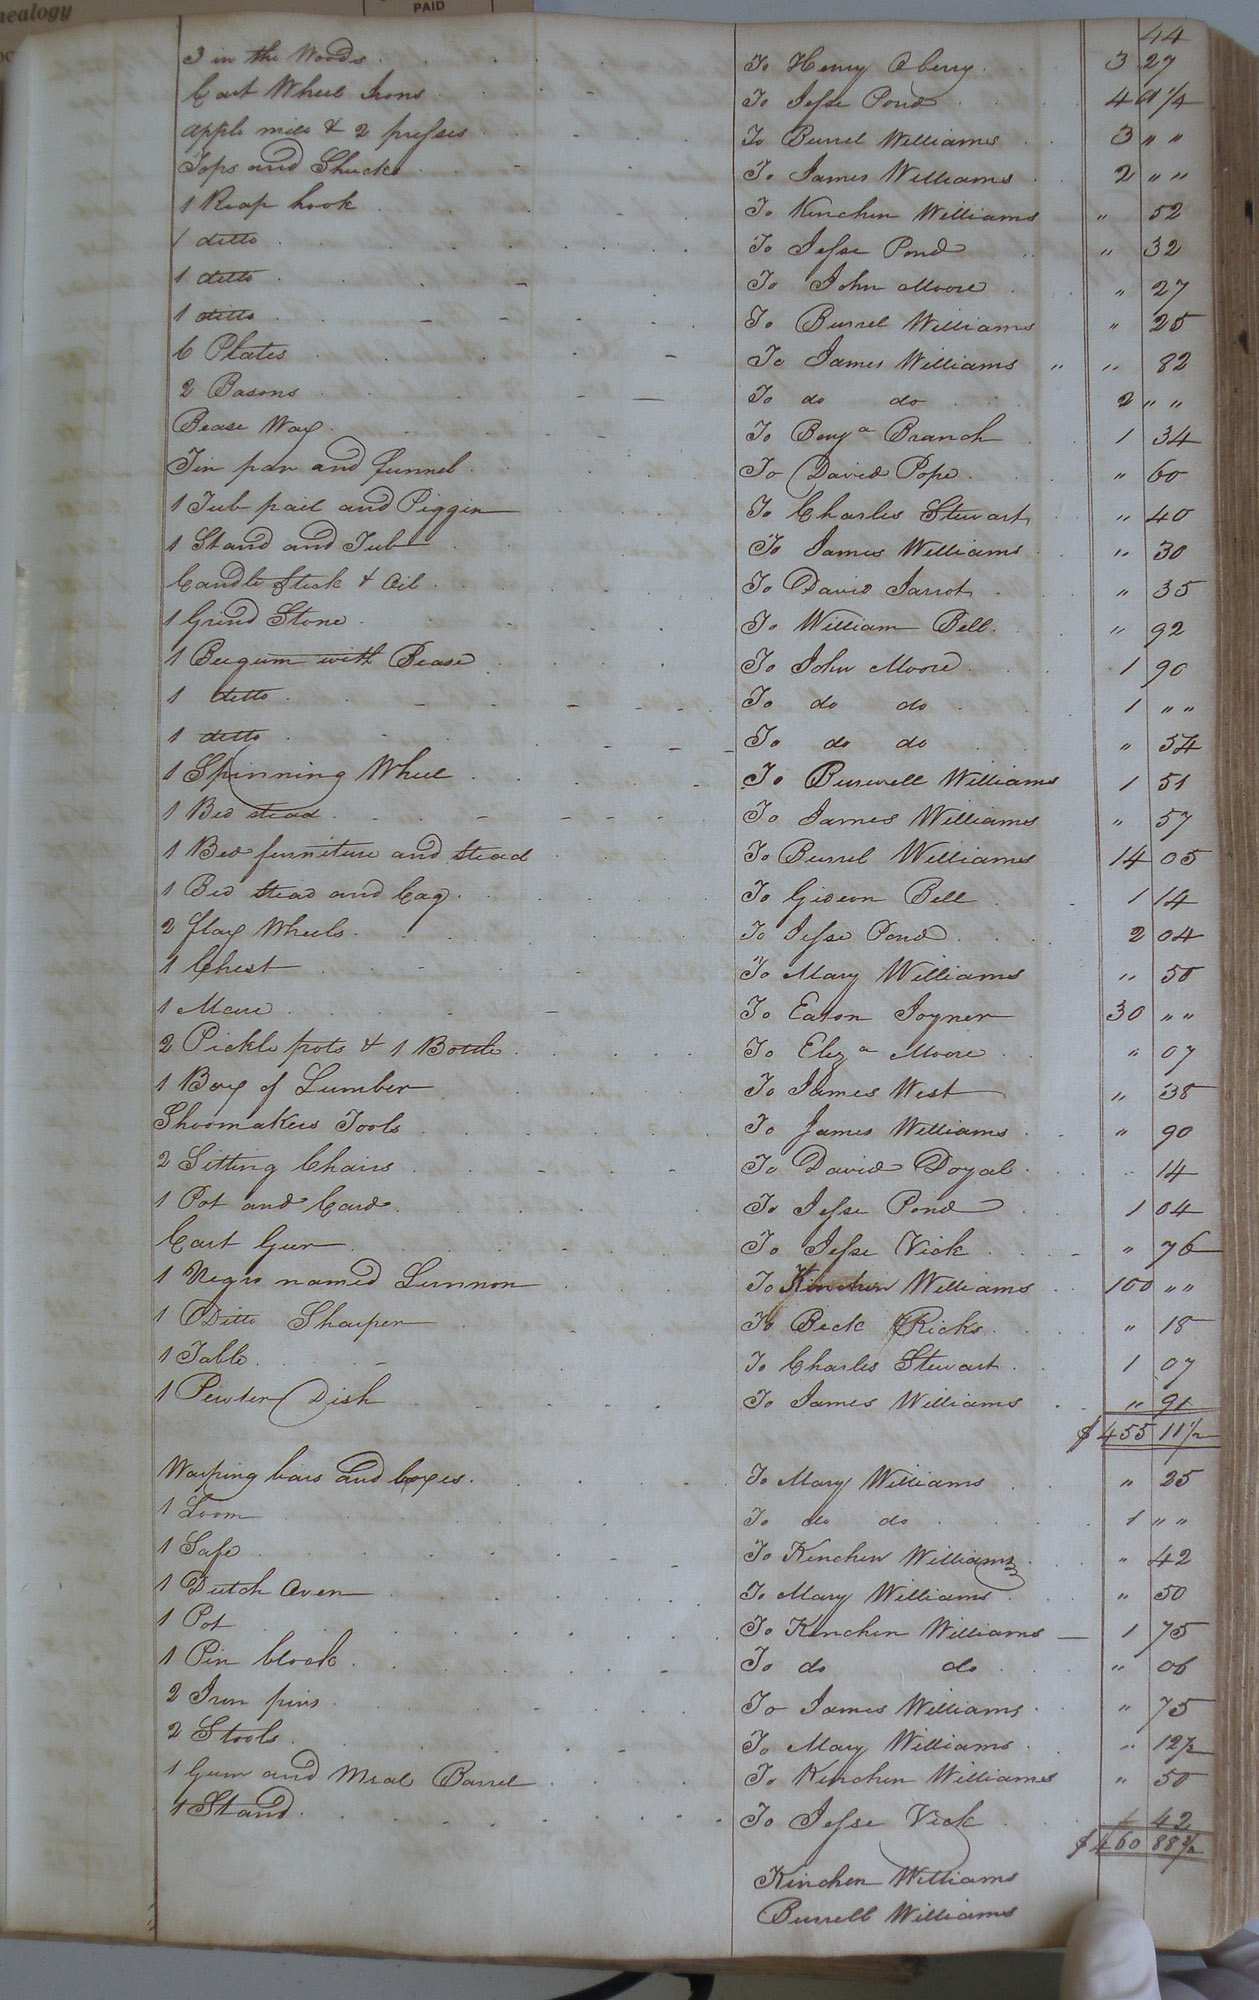 nealogy
PAID
44
3 in the Woods. To Henry Oberry. 3 27
Cart Wheel Irons To Jesse Pond 4 61 1/4
apple mill & 2 presses To Burrel Williams 3 " "
Tops and Shucks To James Williams 2 " "
1 Reap hook To Kinchen Williams " 52
1 ditto To Jesse Pond " 32
1 ditto To John Moore " 27
1 ditto To Burrel Williams " 25
6 Plates To James Williams " " 82
2 Basons To do do 2 " "
Bease Wax To Benja Branch 1 34
Tin pan and funnel To David Pope " 60
1 Tub pail and Piggin To Charles Stewart " 40
1 Stand and Tub To James Williams " 30
Candle stick & Oil To David Jarrot " 35
1 Grind Stone To William Bell " 92
1 Beegum with Bease To John Moore 1 90
1 ditto To do do 1 " "
1 ditto To do do " 54
1 Spinning Wheel To Burwell Williams 1 51
1 Bed stead To James Williams " 57
1 Bed furniture and stead To Burrel Williams 14 05
1 Bed stead and Cag To Gideon Bell 1 14
2 flax Wheels To Jesse Pond 2 04
1 Chest To Mary Williams " 50
1 Mare To Eason Joyner 30 " "
2 Pickle pots & 1 Bottle To Eliza Moore " 07
1 Box of Lumber To James West " 38
Shoomakers Tools To James Williams " 90
2 Sitting Chairs To David Doyal " 14
1 Pot and Card To Jesse Pond 1 04
Cart Geer To Jesse Vick " 76
1 Negro named Lunnon To Kinchen Williams 100 " "
1 Ditto Sharper To Beck Ricks " 18
1 Table To Charles Stewart 1 07
1 Pewter Dish To James Williams " 91
$ 455 11 1/2
Warping bars and boxes. To Mary Williams " 25
1 Loom To do do 1 " "
1 Safe To Kinchen Williams " 42
1 Dutch Oven To Mary Williams " 50
1 Pot To Kinchen Williams 1 75
1 Pin block To do do " 06
2 Iron pins To James Williams " 75
2 Stools To Mary Williams " 12 1/2
1 Gum and Meal Barrel To Kinchen Williams " 50
1 Stand To Jesse Vick 42
$ 460 88
Kinchen Williams
Burrell Williams